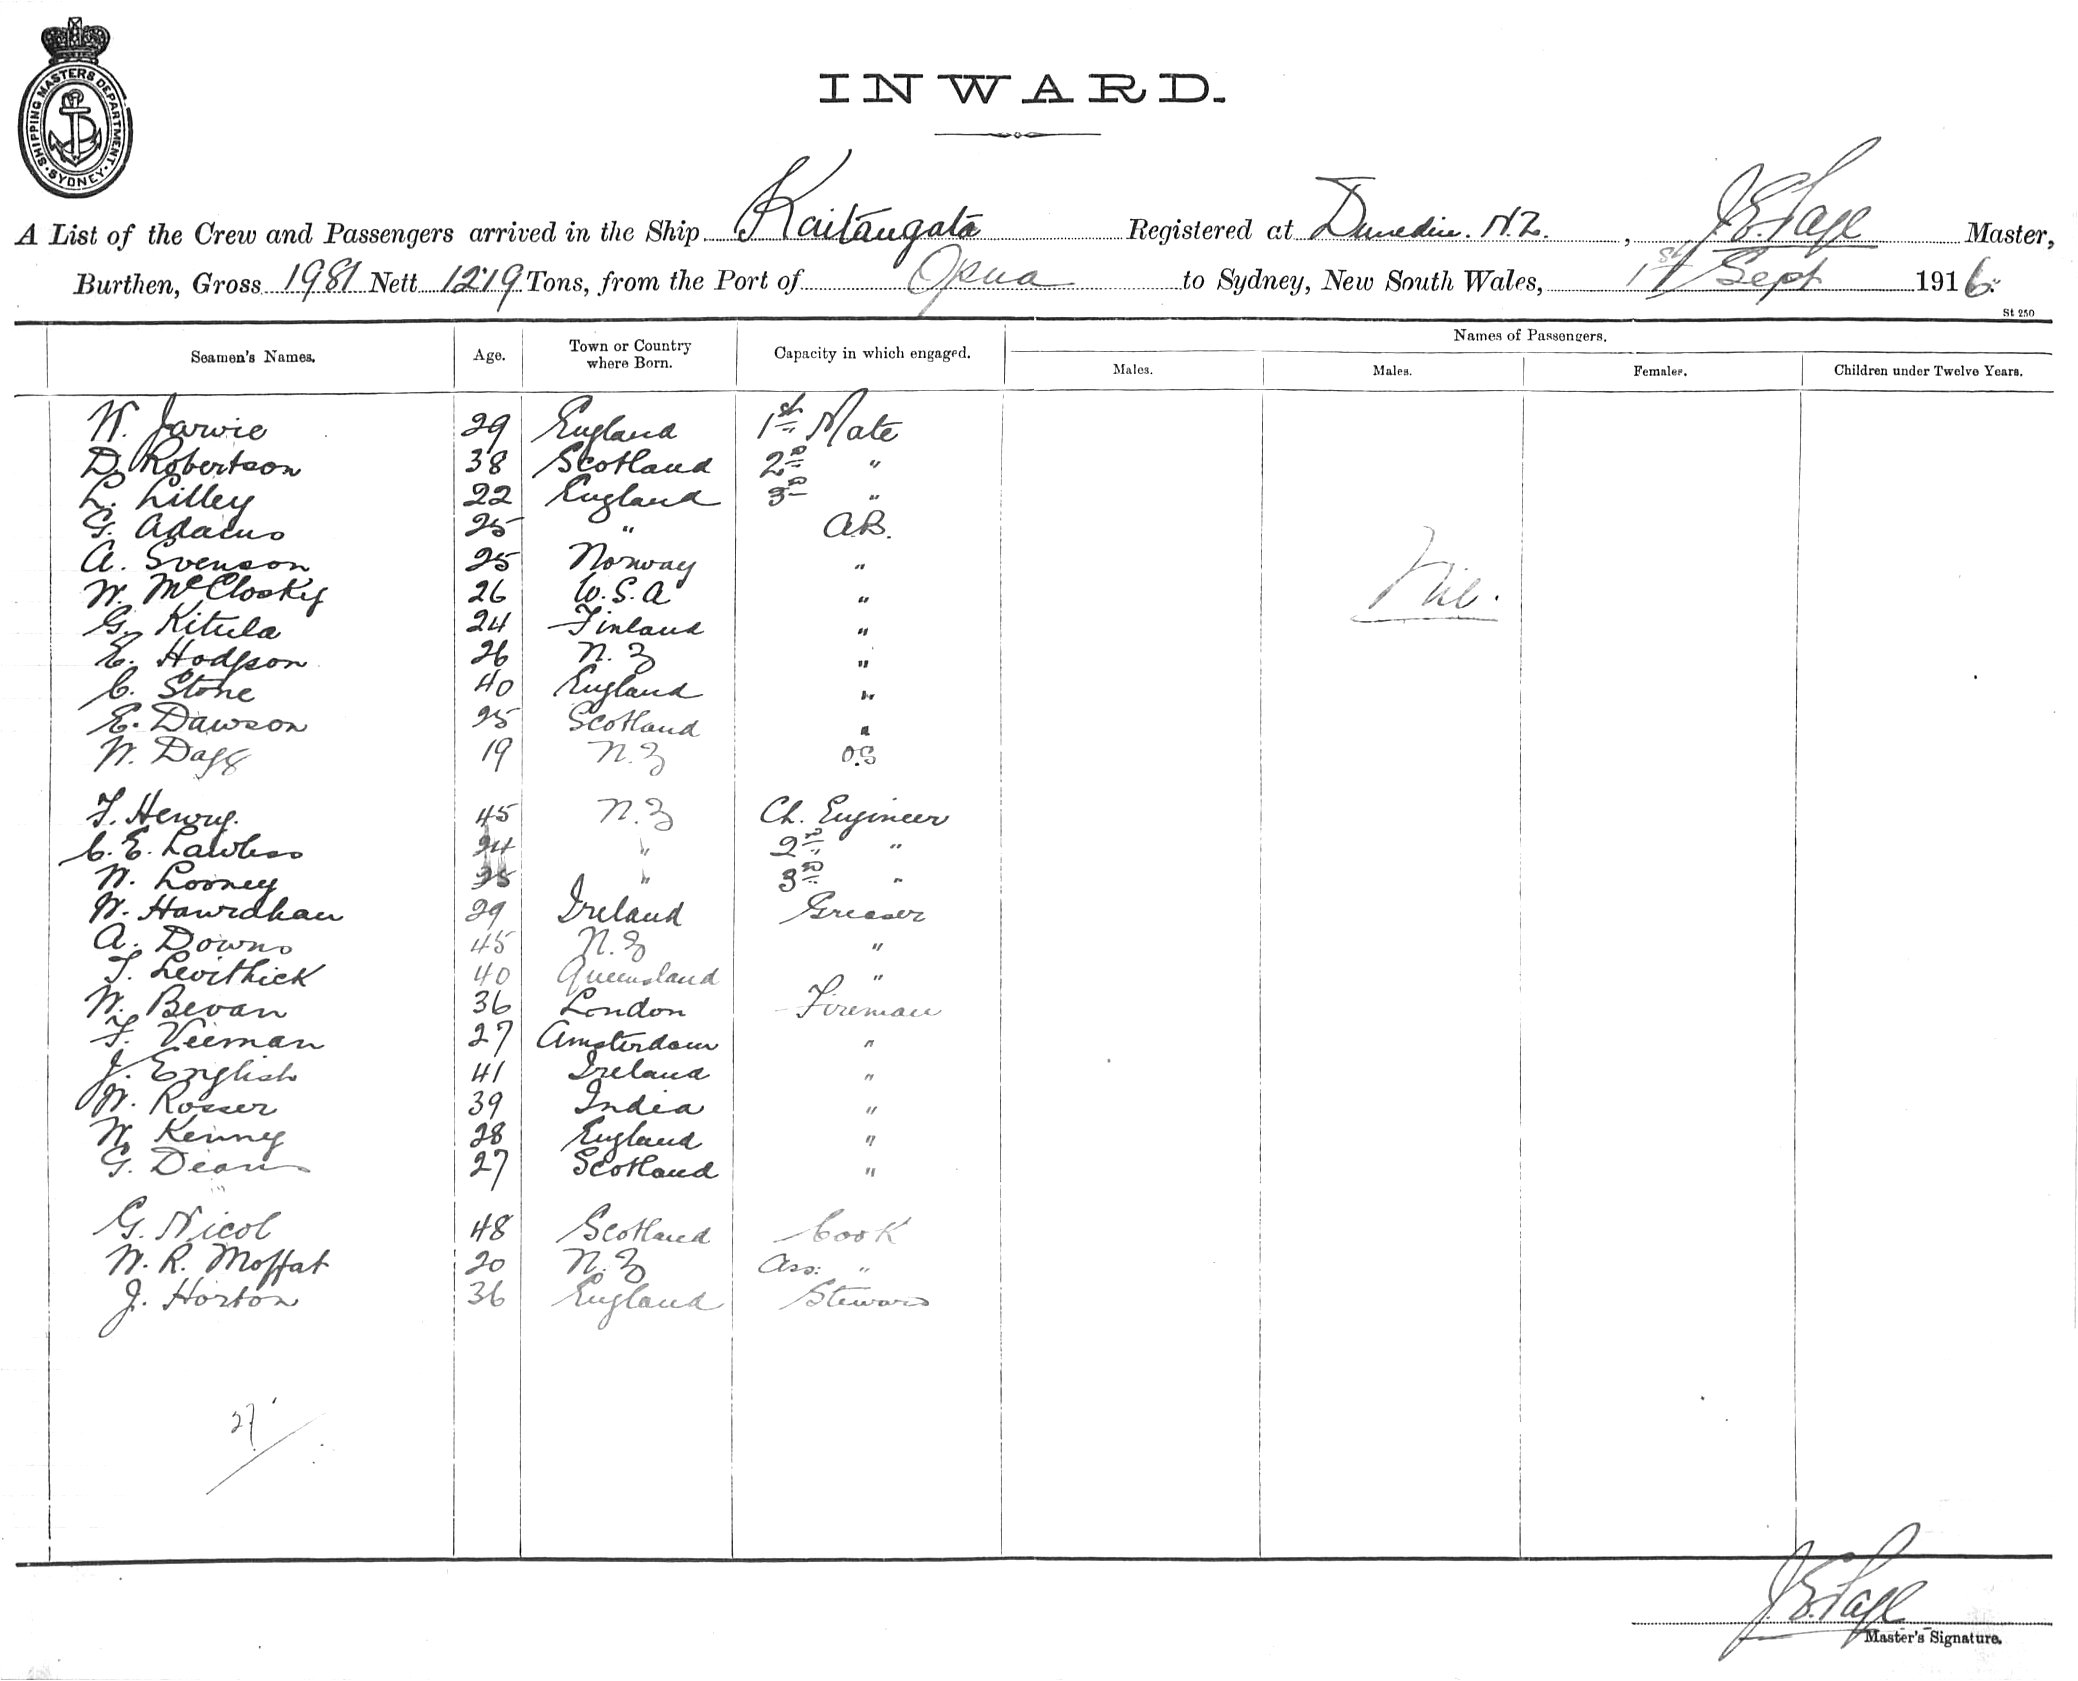 SHIPPING MASTERS DEPARTMENT
SYDNEY
INWARD.
A List of the Crew and Passengers arrived in the Ship Kaitangata Registered at Dunedin. N.Z., J. E. Page Master,
Burthen, Gross 1981 Nett 1219 Tons, from the Port of Opua to Sydney, New South Wales, 1st Sept 1916.
St 250
Seamen's Names. Age. Town or Country where Born. Capacity in which engaged. Names of Passengers.
Males. Males. Females. Children under Twelve Years.
W. Jarvie 29 England 1st Mate
D. Robertson 38 Scotland 2nd "
L. Lilley 22 England 3rd "
G. Adams 25 " A.B.
A. Svenson 25 Norway "
W. McClosky 26 U.S.A "
Nil.
G. Kitula 24 Finland "
E. Hodgson 26 N.Z "
C. Stone 40 England "
E. Dawson 25 Scotland "
W. Dagg 19 N.Z O.S
T. Henry. 45 N.Z Ch. Engineer
C. E. Lawless 24 " 2nd "
W. Looney 25 " 3rd "
W. Hanrahan 29 Ireland Greaser
A. Downs 45 N.Z "
T. Levithick 40 Queensland "
W. Bevan 36 London Fireman
F. Veeman 27 Amsterdam "
J. English 41 Ireland "
W. Rosser 39 India "
W. Kenny 28 England "
G. Deans 27 Scotland "
G. Nicol 48 Scotland Cook
W. R. Moffat 20 N.Z Ass: "
J. Horton 36 England Steward
27
J. E. Page
Master's Signature.